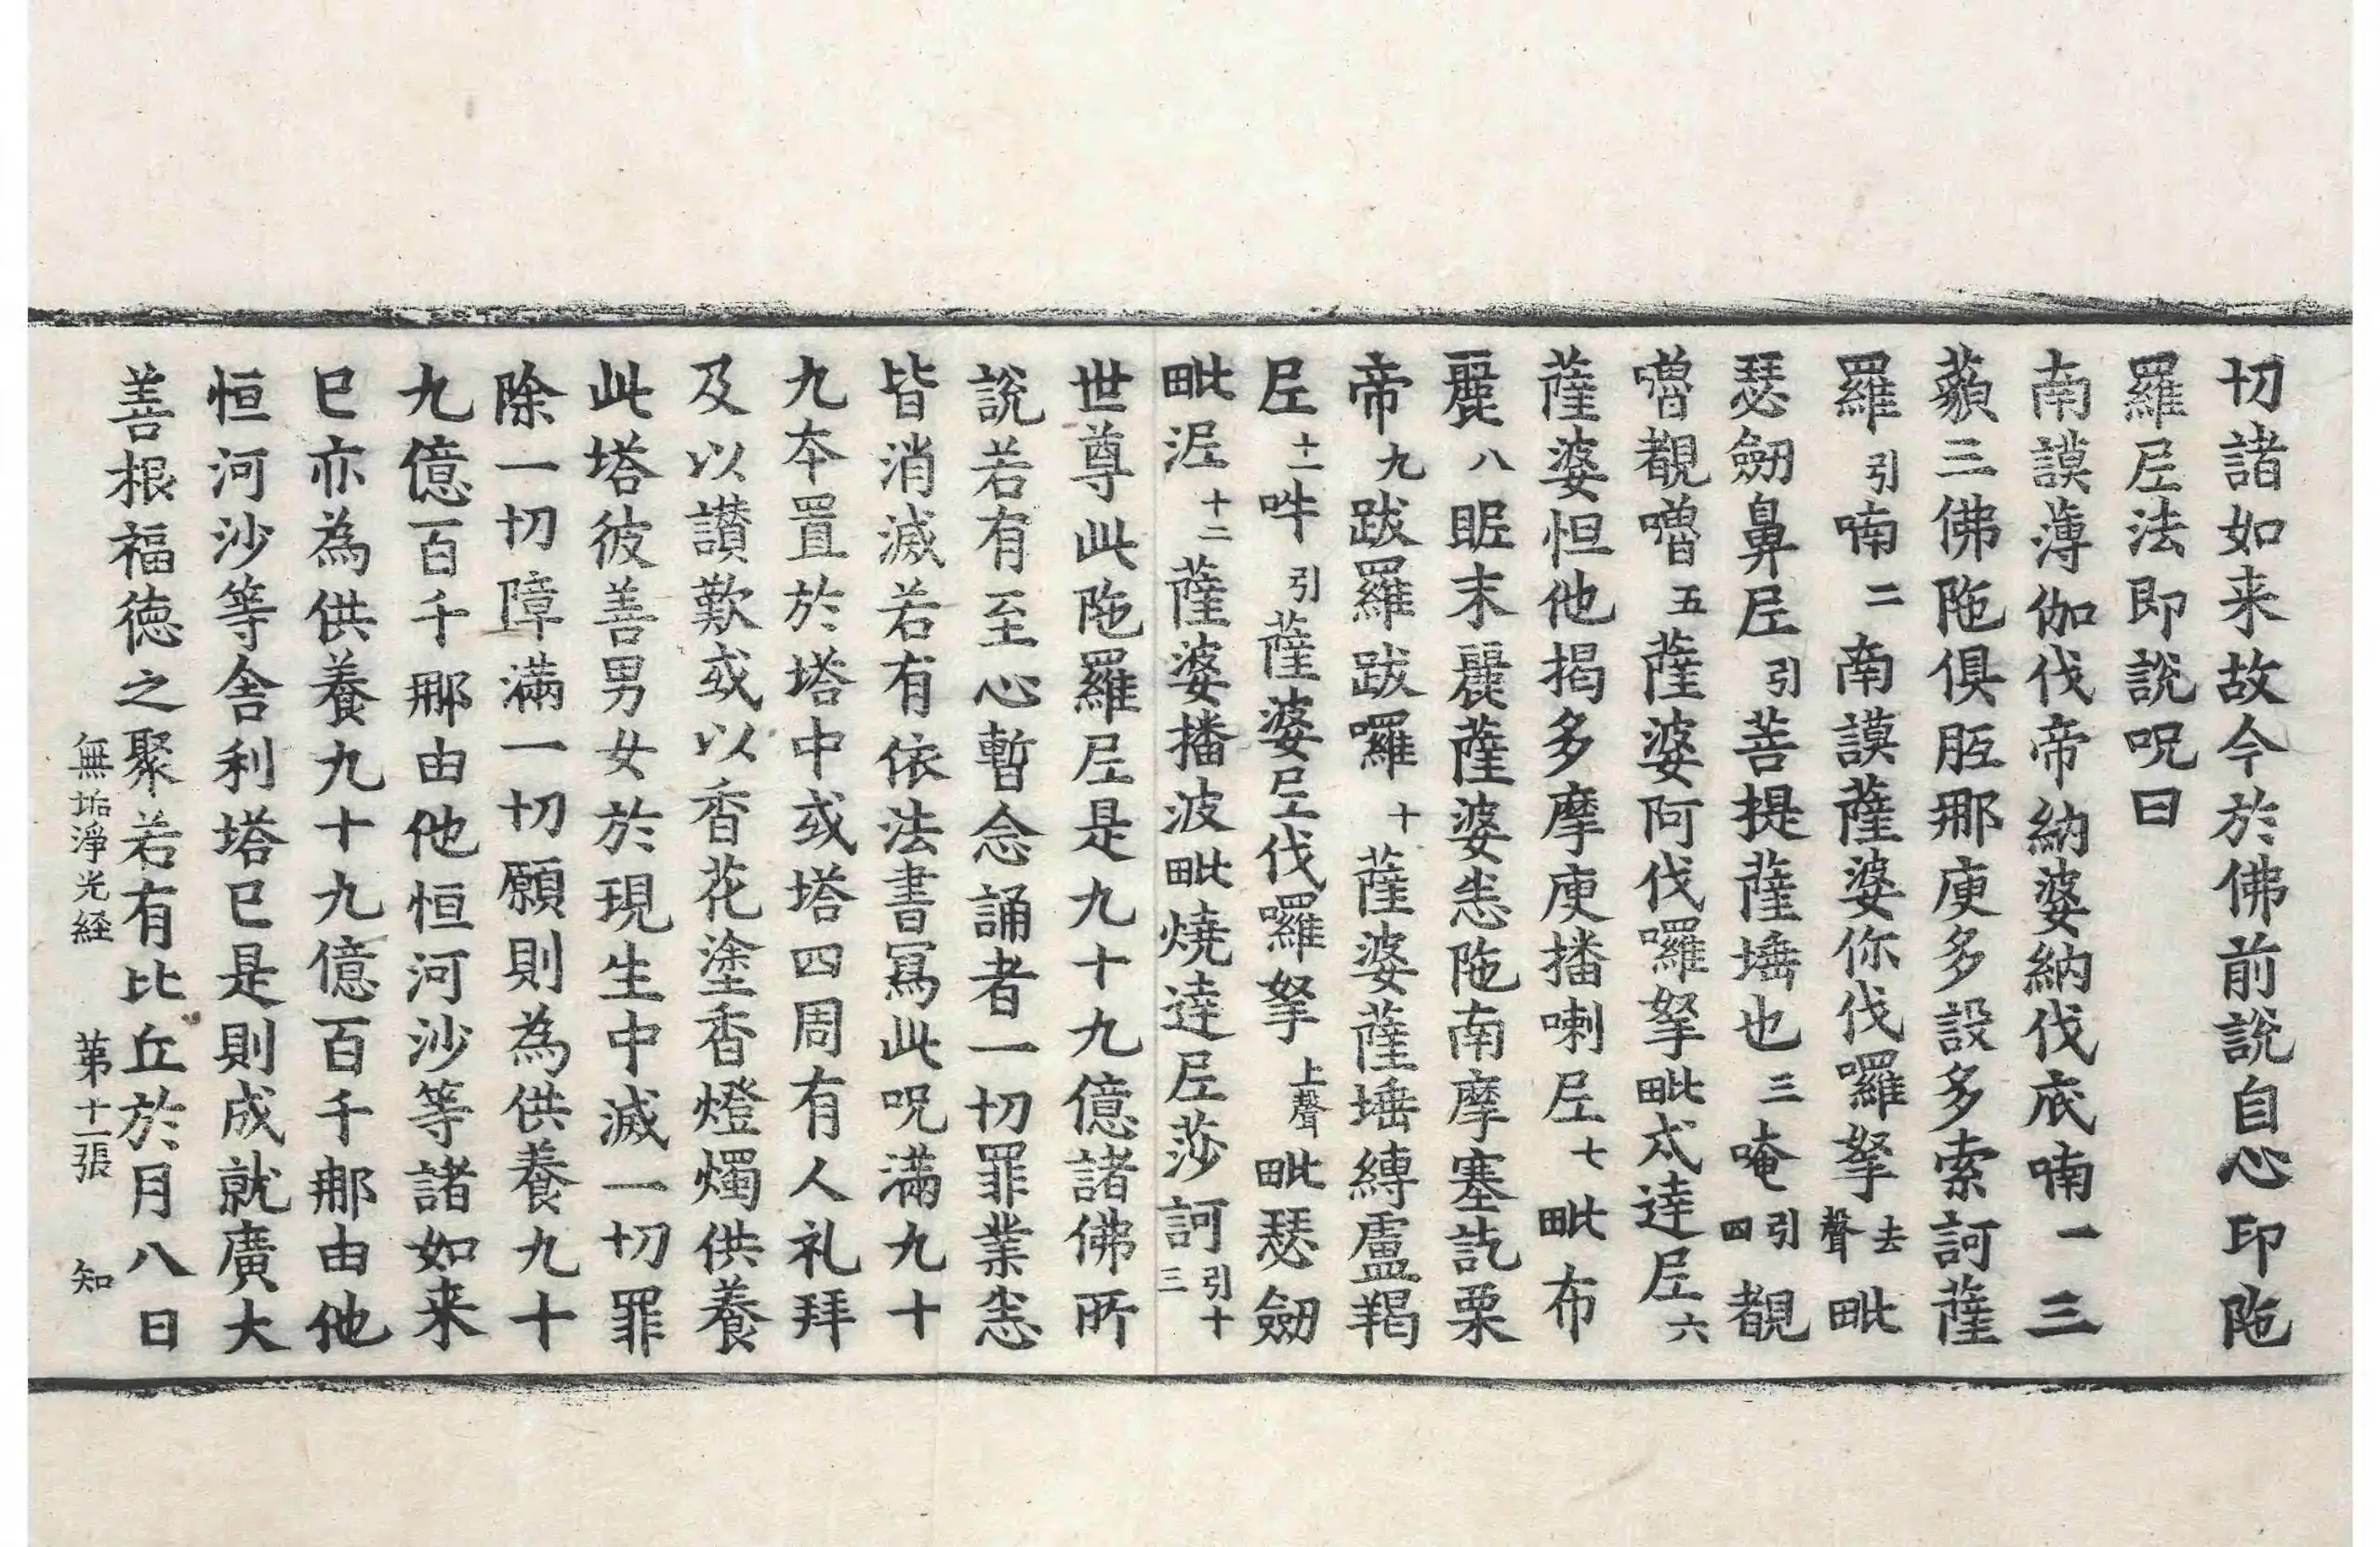 切諸如来故今於佛前說自心印陁
羅𡰱法即說呪曰
南謨薄伽伐帝納婆納伐底喃一三
藐三佛陁俱胝那庾多設多索訶薩
羅引喃二南謨薩婆你伐囉拏去聲毗
瑟劒鼻𡰱引菩提薩埵也三唵引四覩
嚕覩嚕五薩婆阿伐囉拏毗戍達𡰱六
薩婆怛他揭多摩庾播喇𡰱七毗布
麗八昵末麗薩婆悉陁南摩塞訖栗
帝九跋羅跋囉十薩婆薩埵縛盧羯
𡰱十一吽引薩婆𡰱伐囉拏上聲毗瑟劒
毗泥十二薩婆播波毗燒達𡰱莎訶引十三
世尊此陁羅𡰱是九十九億諸佛所
說若有至心暫念誦者一切罪業悉
皆消滅若有依法書寫此呪滿九十
九本置於塔中或塔四周有人礼拜
及以讃歎或以香花塗香燈燭供養
此塔彼善男女於現生中滅一切罪
除一切障滿一切願則為供養九十
九億百千那由他恒河沙等諸如来
已亦為供養九十九億百千那由他
恒河沙等舎利塔已是則成就廣大
善根福徳之聚若有比丘於月八日
無垢淨光経　第十一張　知